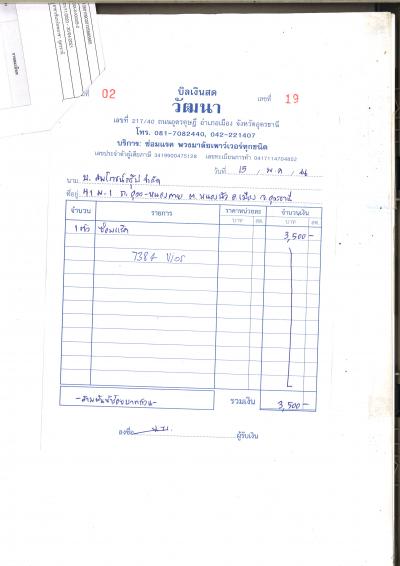 บิลเงินสด
ที่ 02
วัฒนา
เลขที่ 19
เลขที่ 217/40 ถนนอุดรดุษฎี อำเภอเมือง จังหวัดอุดรธานี
โทร. 081-7082440, 042-221407
บริการ: ซ่อมแรค พวงมาลัยเพาว์เวอร์ทุกชนิด
เลขประจำตัวผู้เสียภาษี 3419900475128 เลขทะเบียนการค้า 0417114704802
วันที่ 15 / พ.ค /
นาม บ. จำกัด
ที่อยู่ 41 ม.1 ถ. อุดร-หนองคาย ต. หมากแข้ง อ. เมือง จ. อุดรธานี
จำนวน รายการ ราคาหน่วยละ จำนวนเงิน
บาท สต. บาท สต.
1 ตัว ซ่อมแร็ค 3,500 -
7384 Vios
-สามพันห้าร้อยบาทถ้วน- รวมเงิน 3,500 -
ลงชื่อ ผู้รับเงิน